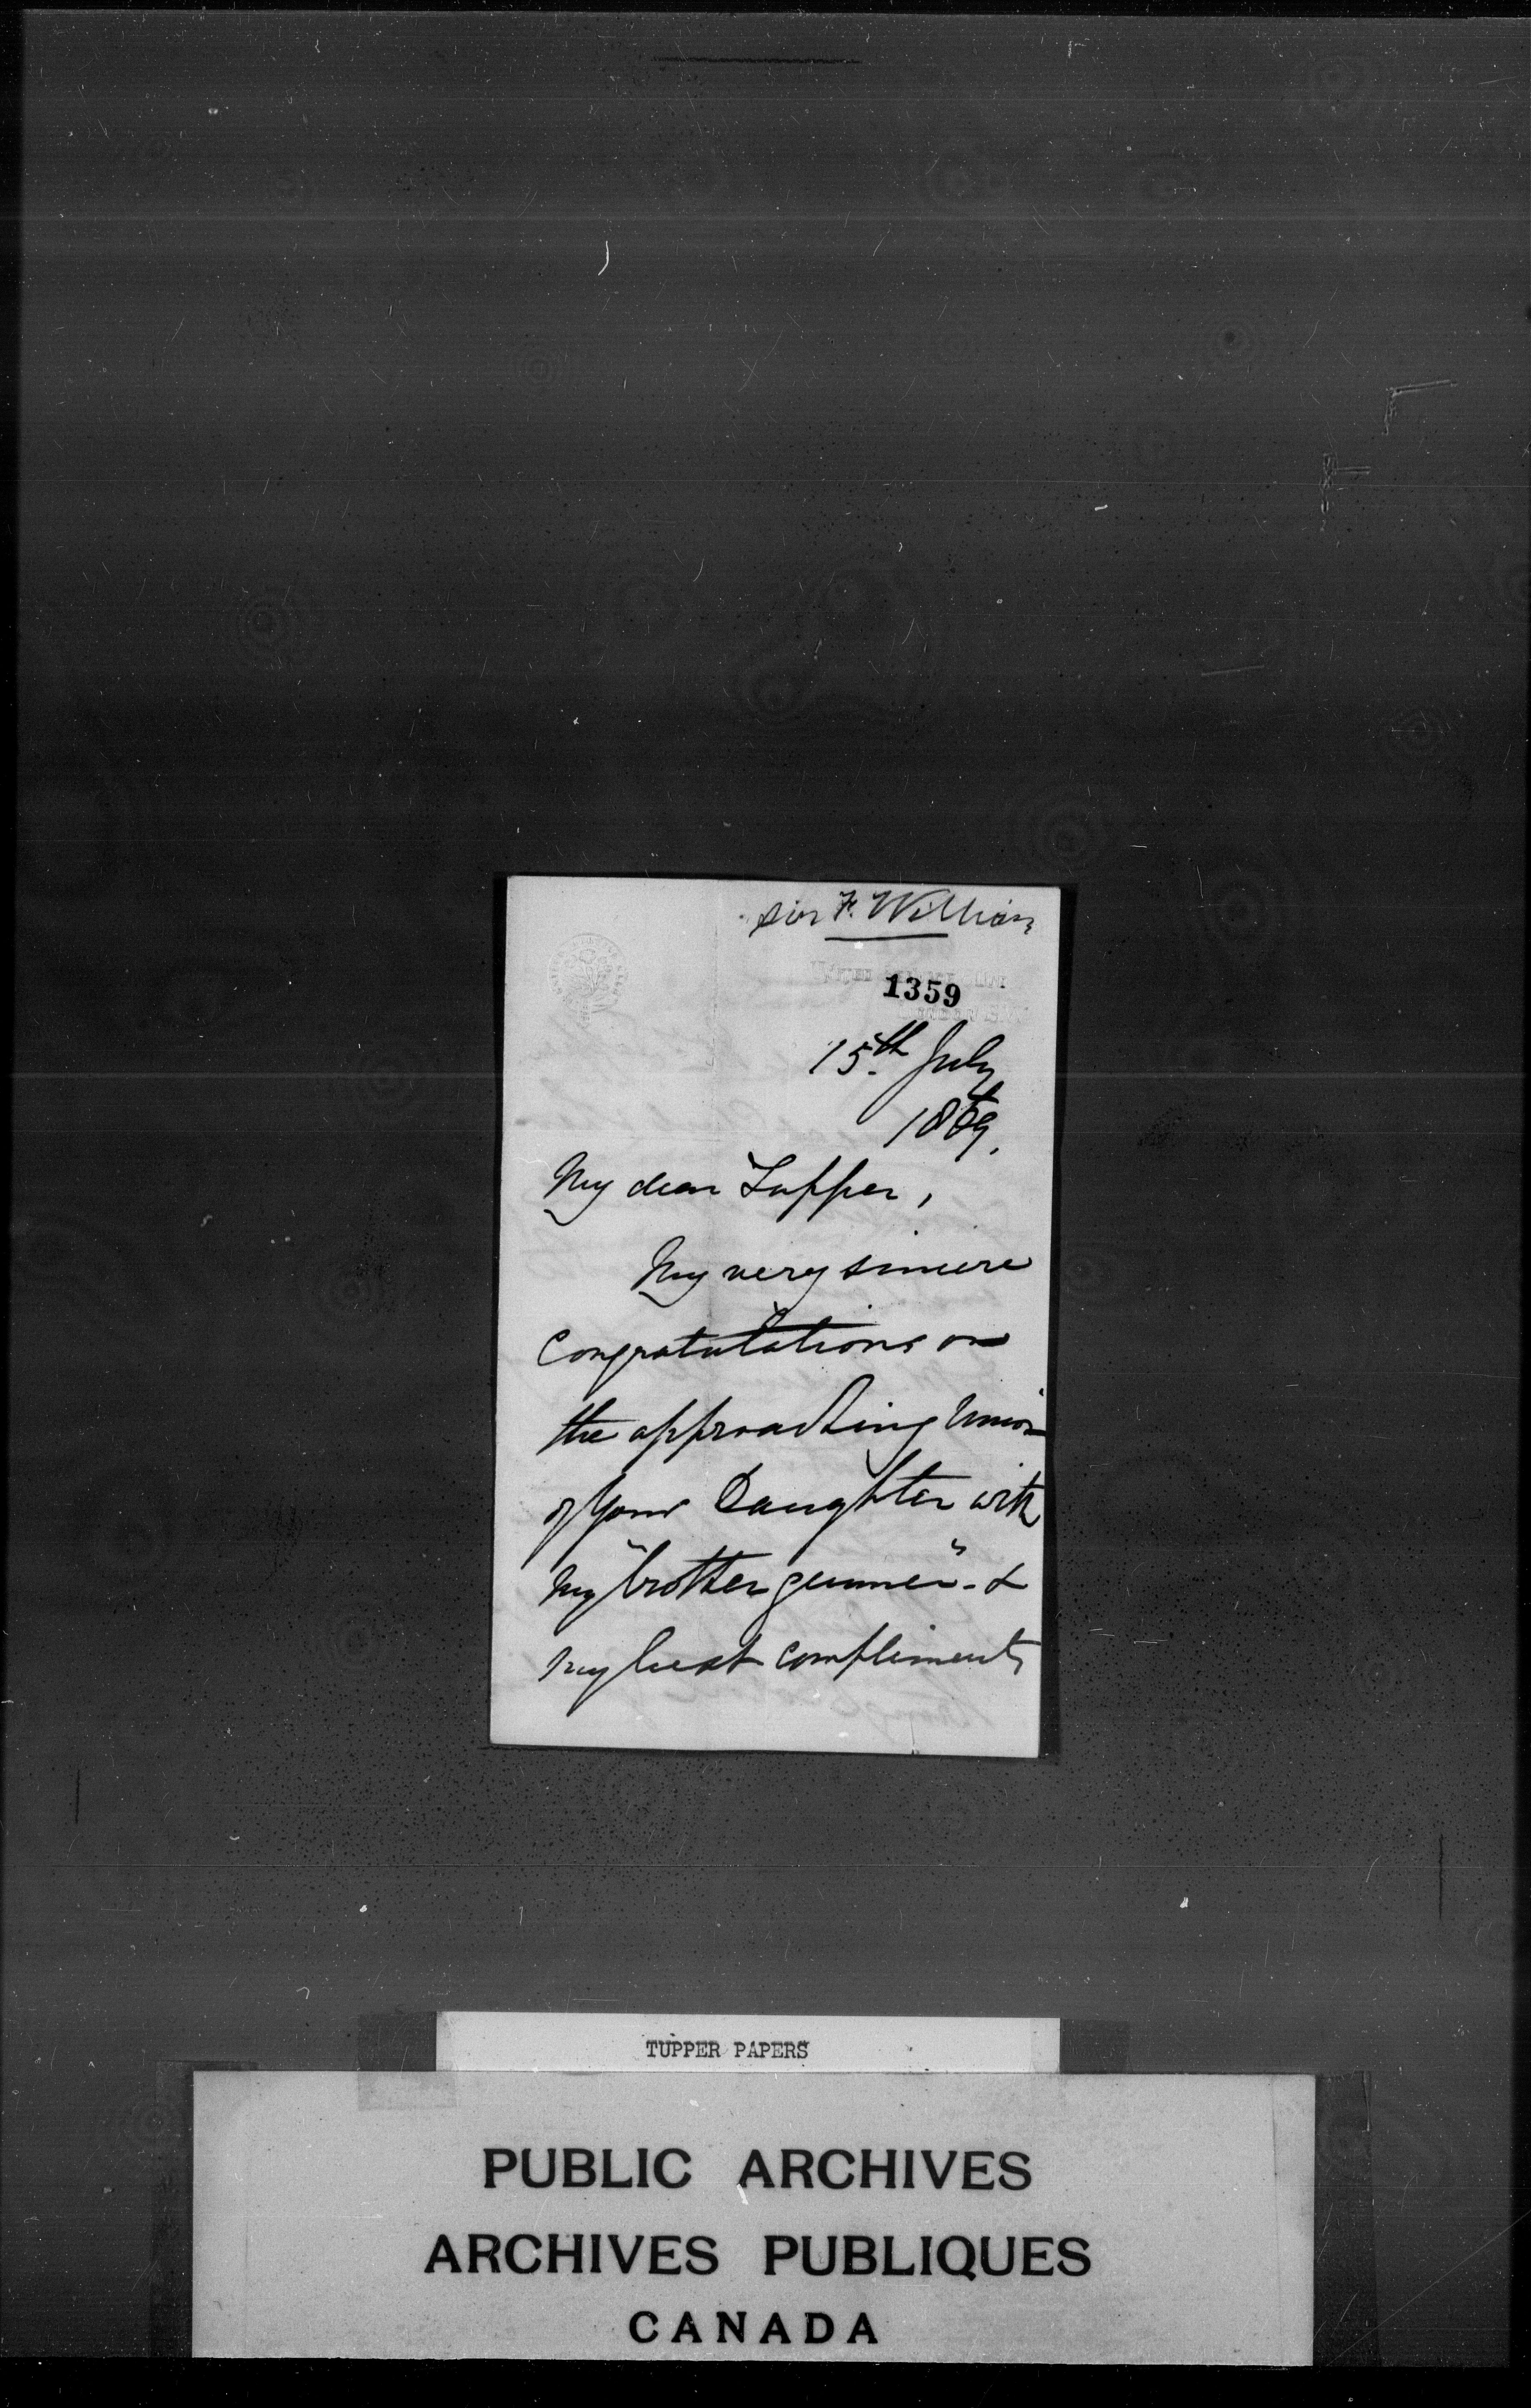 Sir F. William
1359
15th July
1869.
My dear Tupper,
My very sincere
Congratulations on
the approaching Union
of your Daughter with
my "brother gunner" - &
my best compliments
TUPPER PAPERS
PUBLIC ARCHIVES
ARCHIVES PUBLIQUES
CANADA